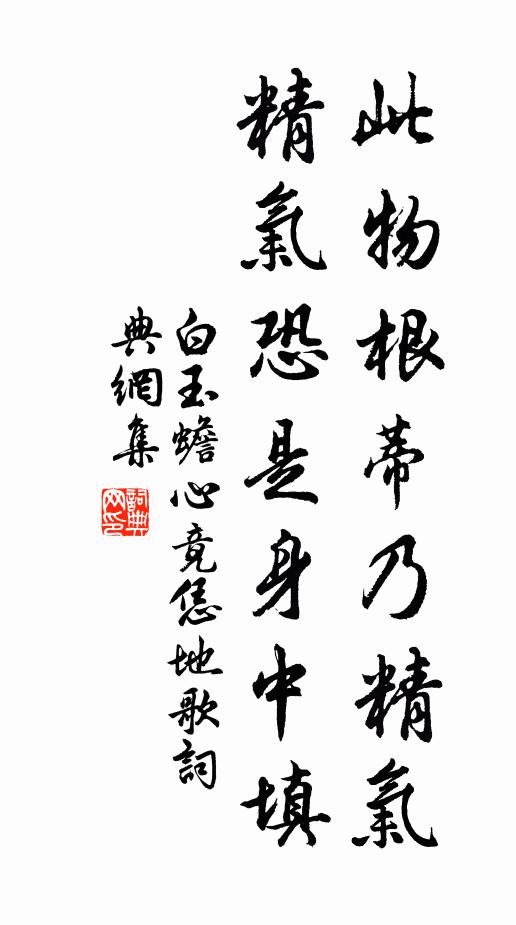 此物根蒂乃精氣
精氣恐是身中填
白玉蟾心竟恁地歌詞
典網集
詞典网印